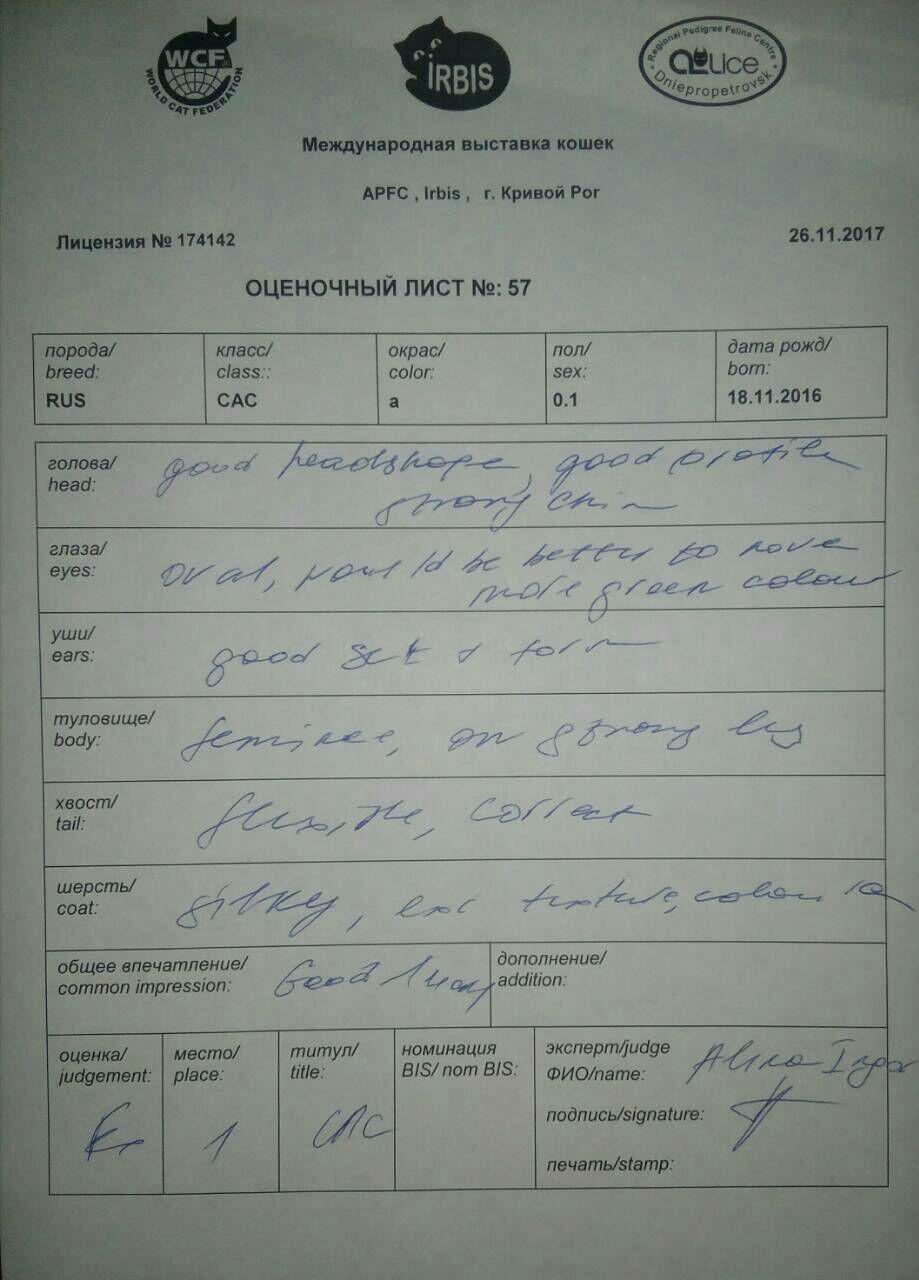 WCF
WORLD CAT FEDERATION
IRBIS
Regional Pedigree Feline Centre
ALice
Dniepropetrovsk
Международная выставка кошек
APFC , Irbis , г. Кривой Рог
Лицензия № 174142
26.11.2017
ОЦЕНОЧНЫЙ ЛИСТ №: 57
порода/
breed:
RUS
класс/
class::
CAC
окрас/
color:
a
пол/
sex:
0.1
дата рожд/
born:
18.11.2016
голова/
head:
good headshape, good profile
strong chin
глаза/
eyes:
oval, would be better to have
more green colour
уши/
ears:
good set & form
туловище/
body:
feminee, on strong leg
хвост/
tail:
flexible, correct
шерсть/
coat:
silky, exc texture, colour
общее впечатление/
common impression:
Good
дополнение/
addition:
оценка/
judgement:
Ex
место/
place:
1
титул/
title:
CAC
номинация
BIS/ nom BIS:
эксперт/judge
ФИО/name:
Alina
подпись/signature:
печать/stamp: